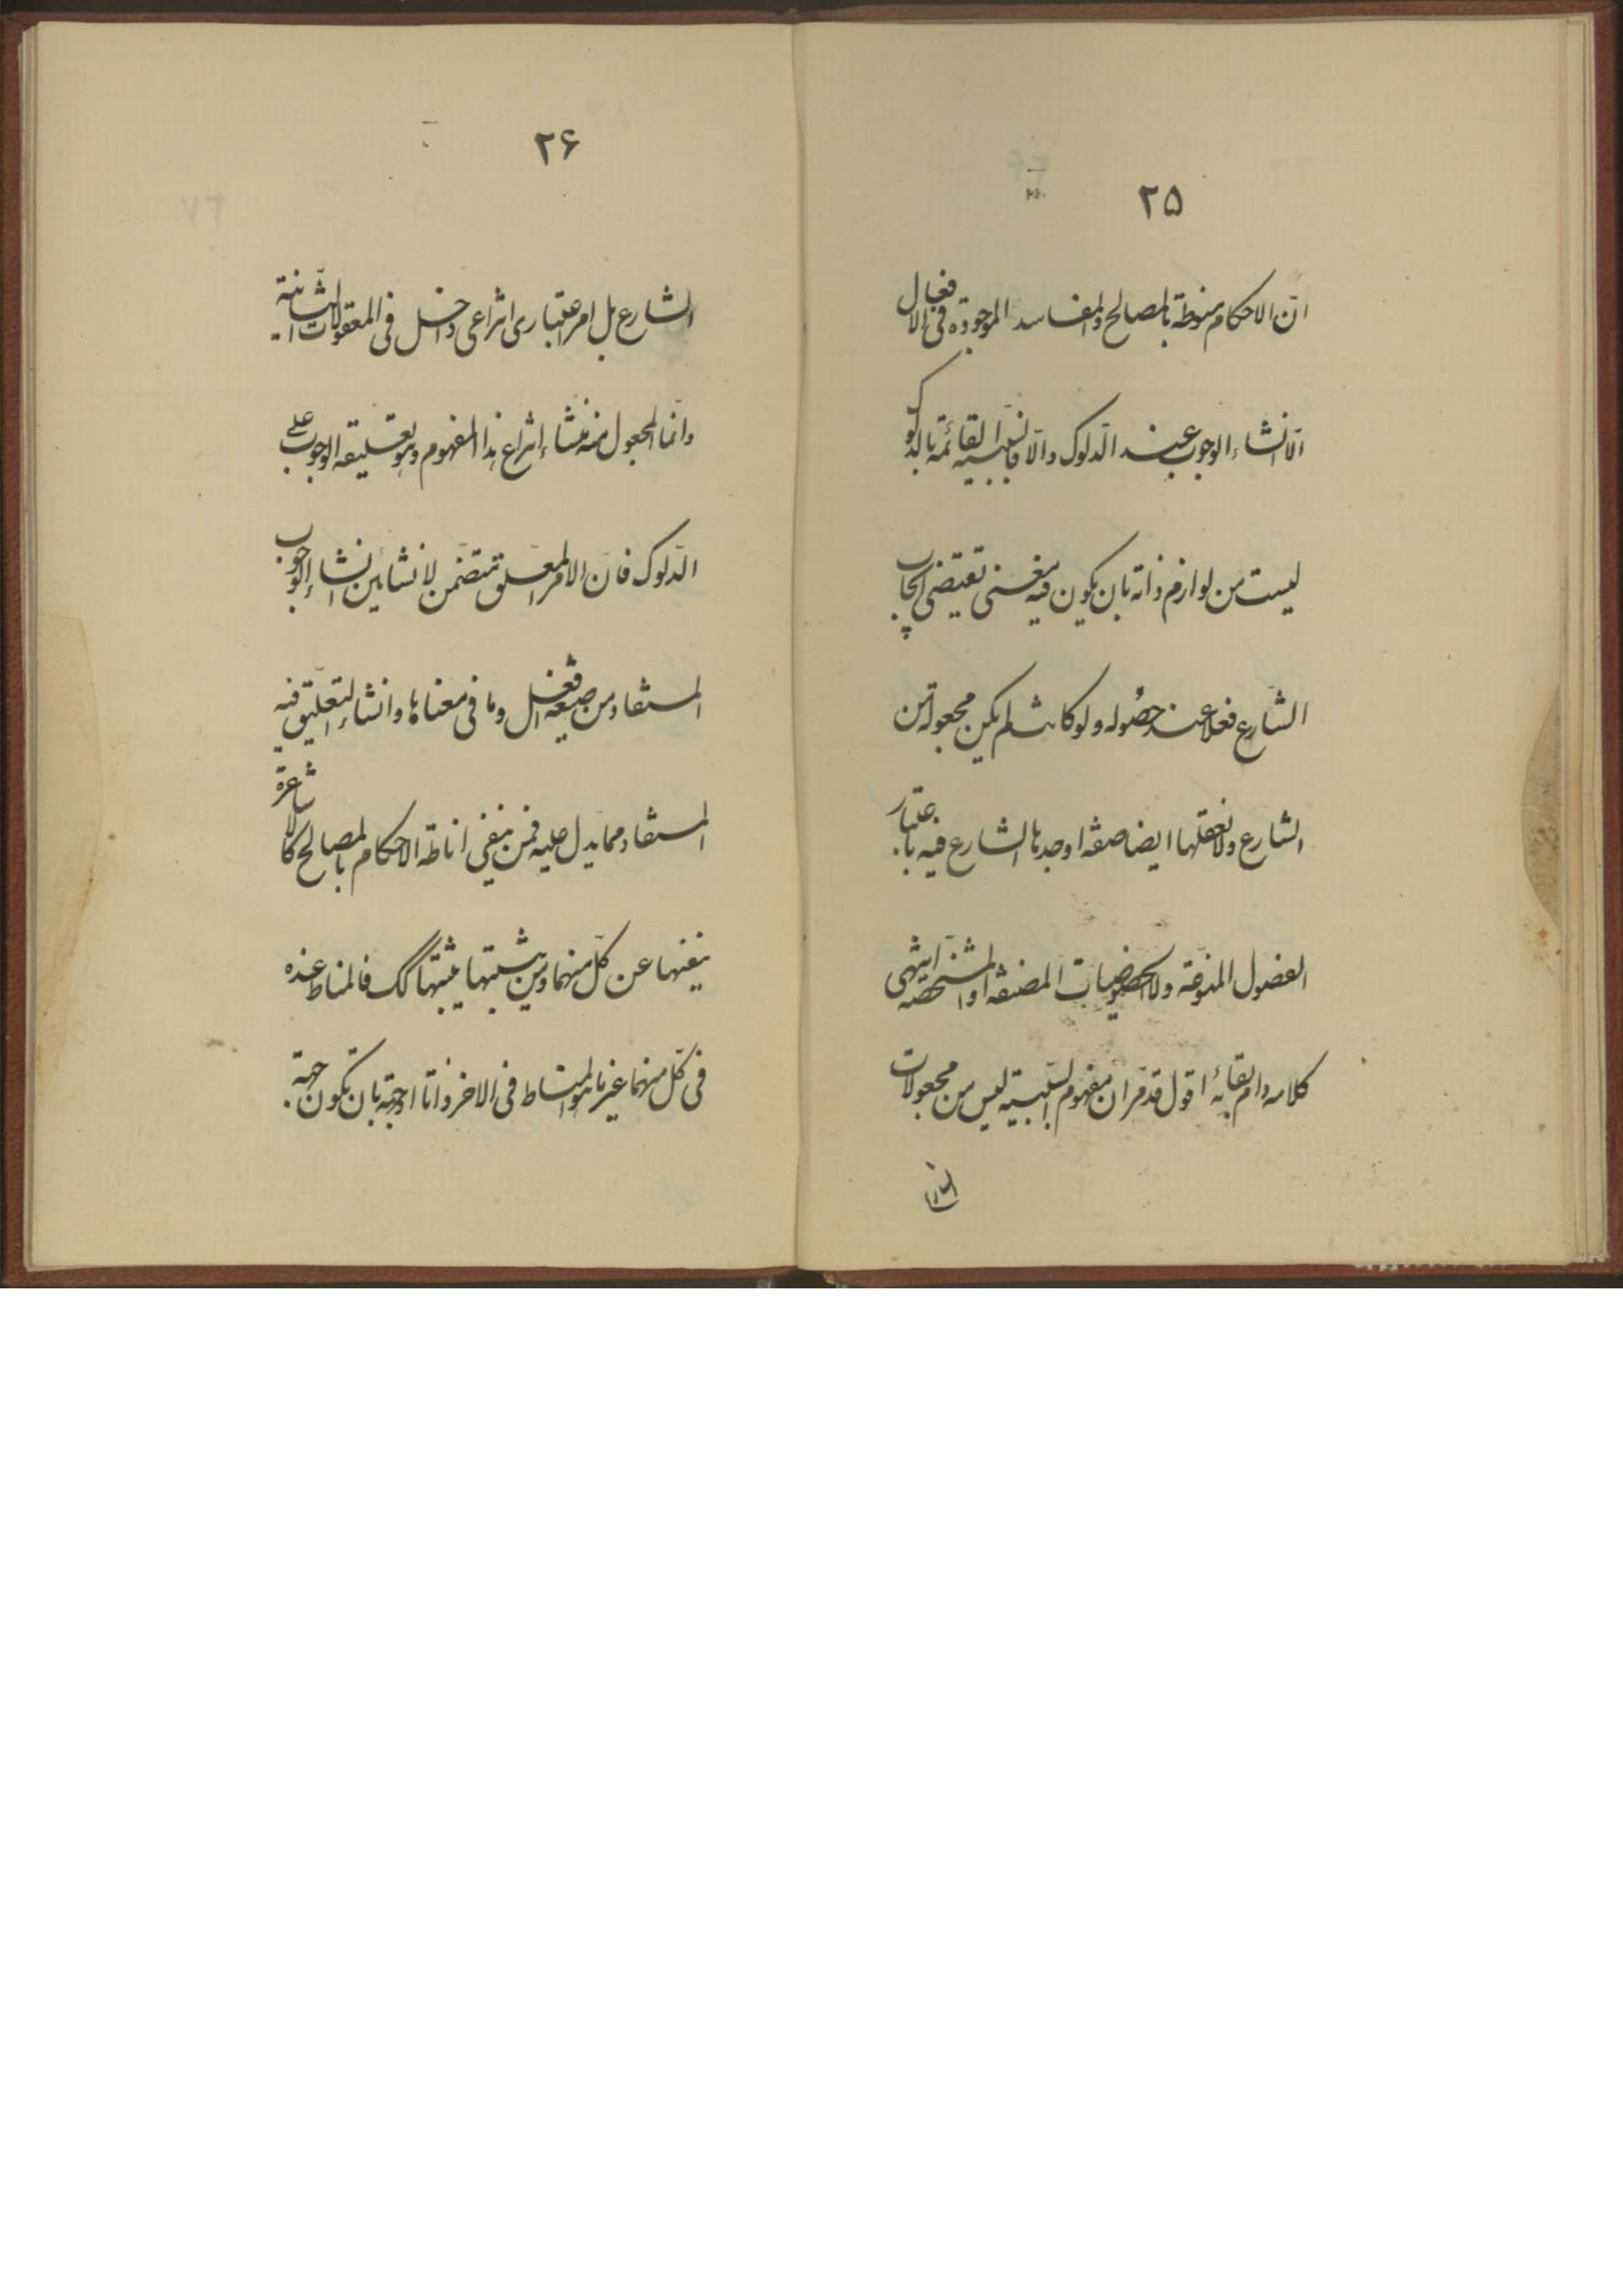 ۲۵
انّ الاحکام منوطة بالمصالح والمفاسد الموجودة فی الافعال
الّا انشاء الوجوب عند الدلوک والّا فالسببیة القائمة بالدلوک
لیست من لوازم ذاته بان یکون فیه معنی تقتضی ایجاب
الشارع فعلا عند حصوله ولو کانت لم یکن مجعولة من
الشارع ولا نعقلها ایضا صفة اوجدها الشارع فیه باعتبار
الفصول المنوّعة ولا الخصوصیات المصنّفة او المشخّصة انتهی
کلامه دام بقائه اقول قد مرّ ان مفهوم السّببیّة لیس من مجعولات
۲۶
الشارع بل امر اعتباری انتزاعی داخل فی المعقولات الثانیة
وانّما المجعول منه منشاء انتزاع هذا المفهوم وهو تعلیقه الوجوب علی
الدّلوک فانّ الامر المعلّق تتضمّن لانشائین انشاء الوجوب
المستفاد من صیغة افعل وما فی معناها وانشاء التعلیق فیه
المستفاد مما یدل علیه فمن ینفی اناطة الاحکام بالمصالح کالاشاعرة
ینفیها عن کلّ منهما ومن یثبتها یثبتها کک فالمناط عنده
فی کلّ منهما غیر ما هو المناط فی الاخر ذاتا او جهة بان تکون جهة